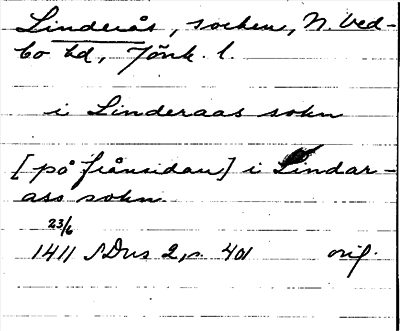 Linderås, socken, N. Ved-
bo hd, Jönk. l.
i Linderaas sokn
[på frånsidan] i Lindar-
ass sokn.
23/6
1411 SDns 2, s. 401 orig.